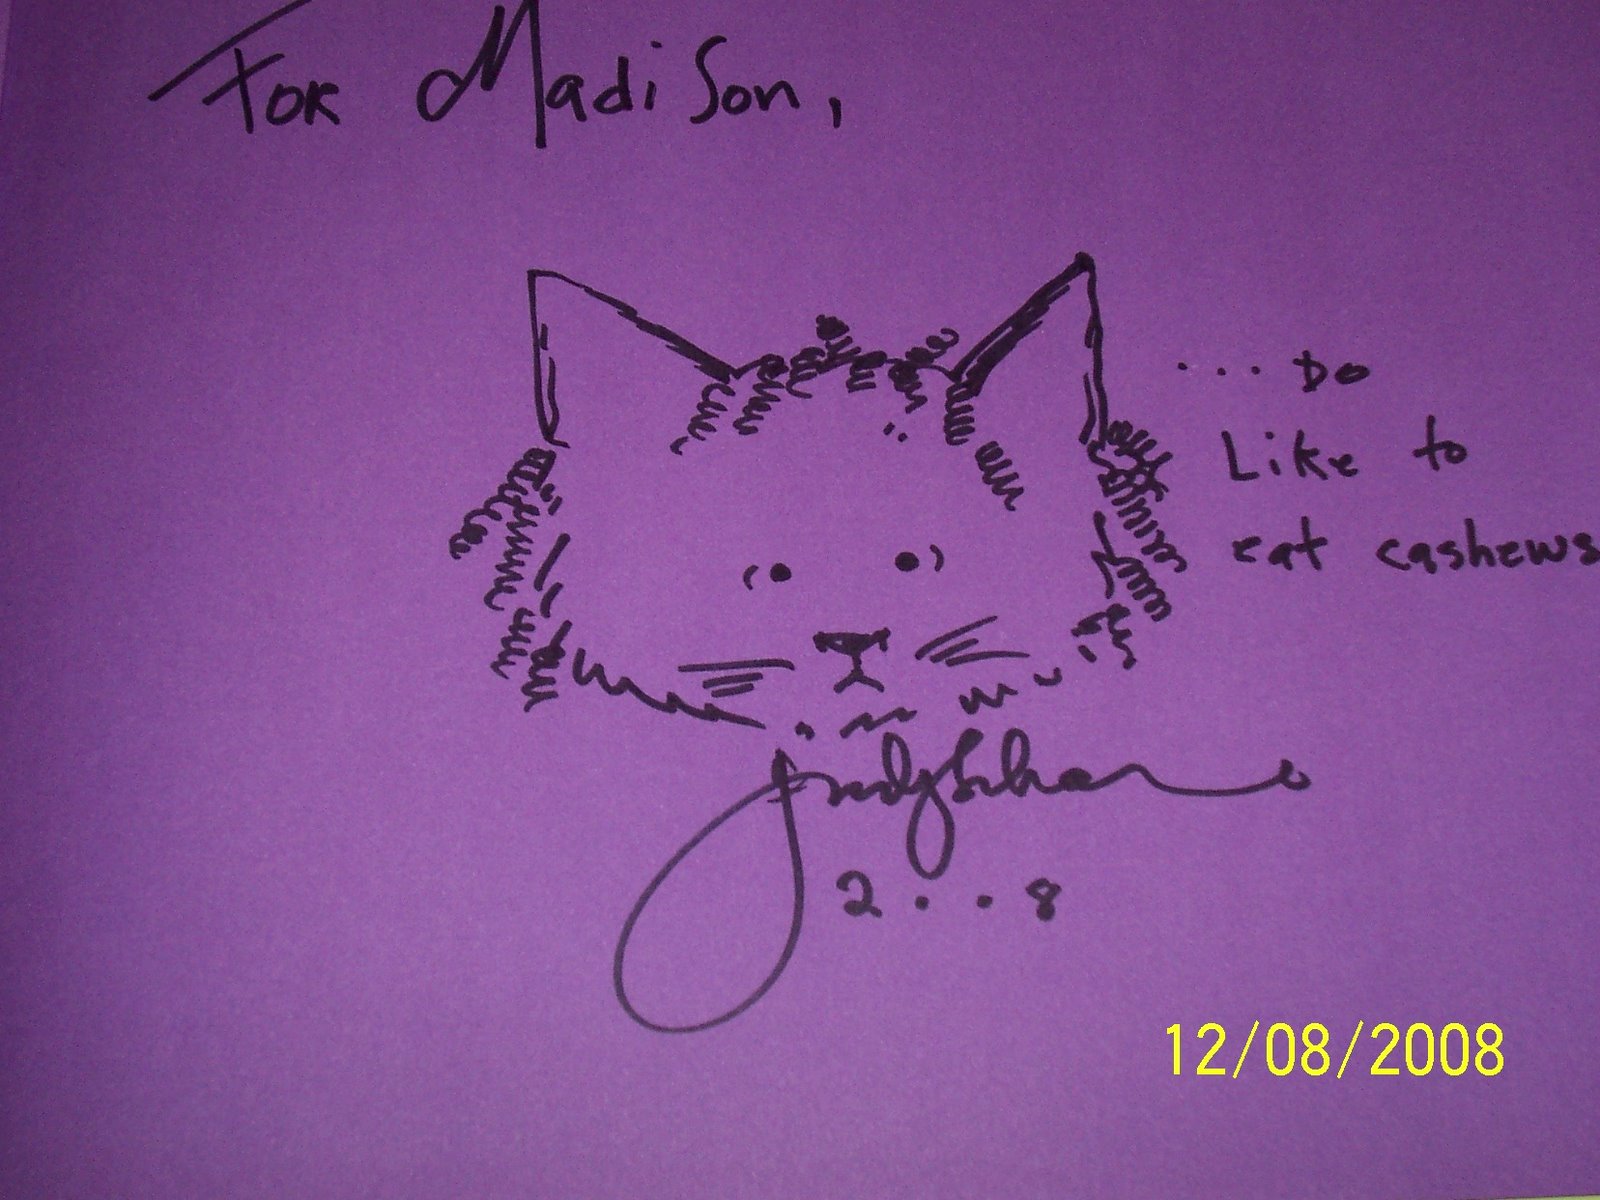 For Madison,
... Do
Like to
eat cashews
Judy Schachner
2..8
12/08/2008